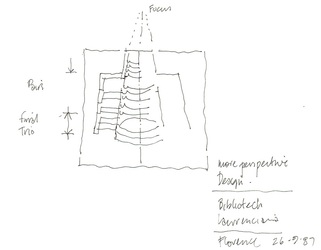 Focus
First
Trio
more perspective
Design.
Bibliotech
Laurenciana
Florence 26-5-87